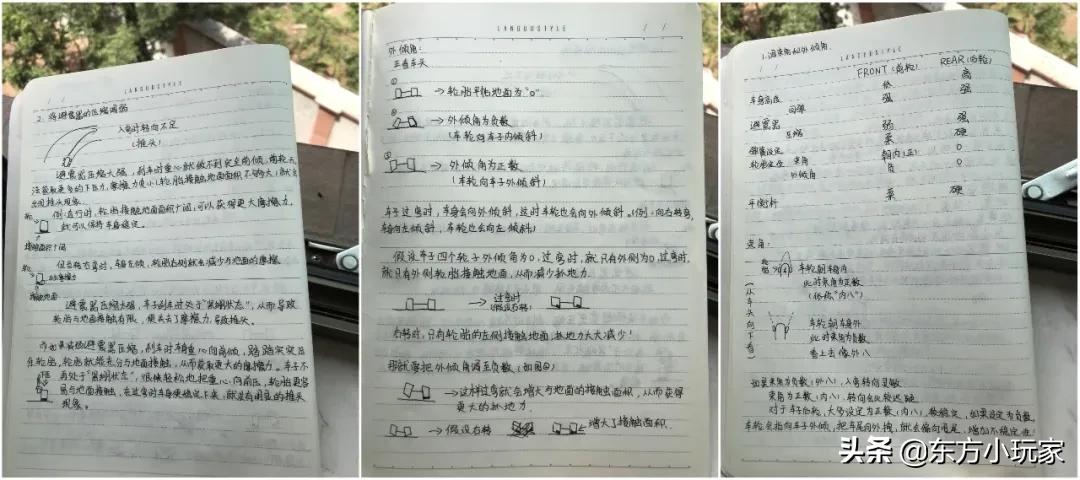 LANGUOSTYLE
2. 将避震器的压缩调弱
入弯时转向不足
(推头)
避震器压缩太强,刹车时重心就做不到完全前倾,前轮无
法获取更多的下压力,摩擦力变小(轮胎接触地面面积不够大)就会
出现推头现象.
例:直行时,轮胎接触地面面积广阔,可以获得更大摩擦力,
就可以保持车身稳定.
接触面积广阔
但当转右弯时,车轴左倾,轮胎右侧就会减少与地面的摩擦
接触地面
避震器压缩太强,车子刹车时处于"紧绷状态",从而导致
轮胎与地面接触有限,便失去了摩擦力,导致推头。
而如果减弱避震器压缩,刹车时车身重心向前倾,踏踏实实压
在轮胎,轮胎就能充分与地面接触,从而获取更大的摩擦力。车子不
再处于"紧绷状态",很快轻松地把重心向前压,轮胎更容
易与地面接触,在过弯时车身便稳定下来,就没有明显的推头
现象。
LANGUOSTYLE
/ /
外倾角:
正看车头
①
→轮胎平贴地面为"0"
②
→外倾角为负数
(车轮向车子内倾斜)
③
→外倾角为正数
(车轮向车子外倾斜)
车子过弯时,车身会向外倾斜,这时车轮也会向外倾斜。(例:向右转弯,
车轴向左倾斜,车轮也会向左倾斜)
假设车子四个轮子外倾角为0,过弯时,就只有外侧为0,过弯时,
就只有外侧轮胎接触地面,从而减少抓地力.
→过弯时
(假设右转)
右转时,只有轮胎的左侧接触地面,抓地力大大减少!
那就需把外倾角调至负数(如图②)
→这样过弯就会增大与地面的接触面积,从而获得
更大的抓地力.
→假设右转
增大了接触面积.
LANGUOSTYLE
/ /
1.调束角和外倾角.
FRONT (前轮) REAR (后轮)
车身高度 低 高
回弹 强 强
避震器
压缩 弱 强
弹簧设定 柔 硬
轮胎定位 束角 朝内(正) 0
外倾角 负 0
平衡杆 柔 硬
束角:
车轮朝车辆内
此时束角为正数
(俗称"内八")
从车头向下看
车轮朝车身外
此时束角为负数
看上去像外八
如果束角为负数(外八),入弯转向灵敏
束角为正数(内八),转向会比较迟钝
对于车子后轮,大多设定为正数(内八),较稳定,如果设定为负数,
车轮会指向车子外侧,把车尾向外拽,就会偏向甩尾,增加不稳定性.
头条 @东方小玩家